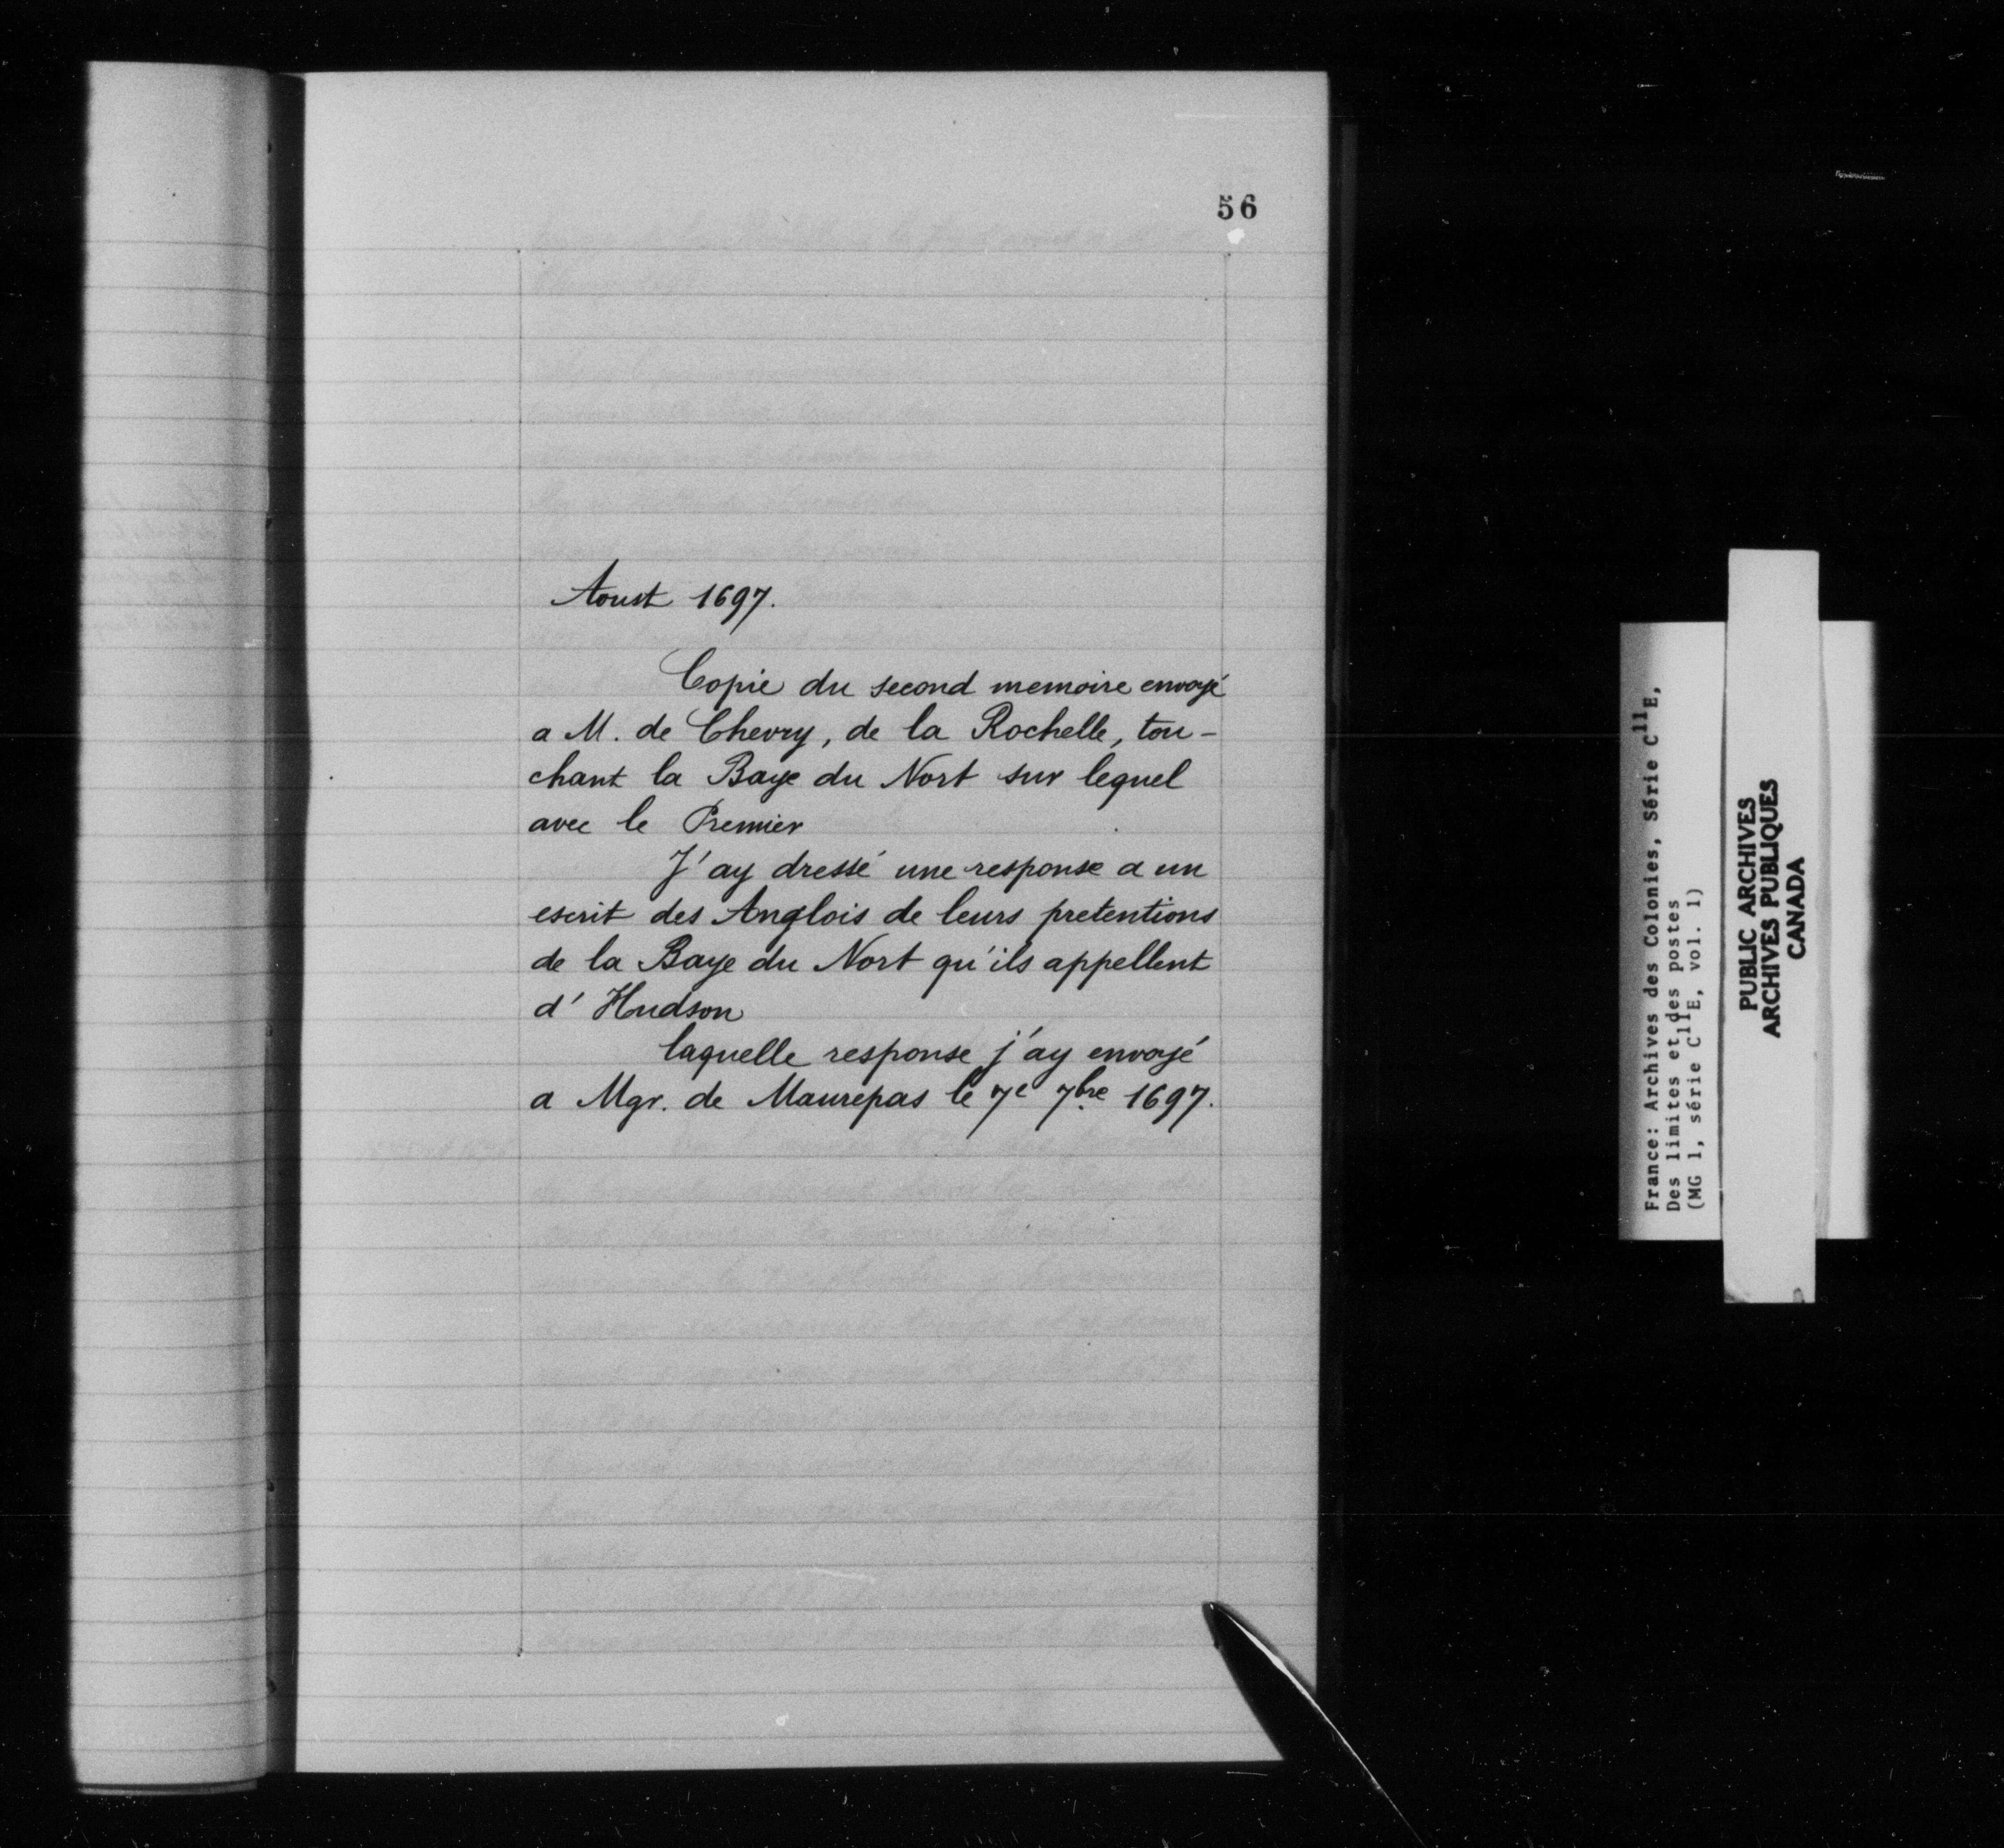 56
Aoust 1697.
Copie du second memoire envoyé
a M. de Chevry, de la Rochelle, tou-
chant la Baye du Nort sur lequel
avec le Premier
J'ay dressé une response a un
escrit des Anglois de leurs pretentions
de la Baye du Nort qu'ils appellent
d'Hudson
laquelle response j'ay envoyé
a Mgr. de Maurepas le 7e 7bre 1697.
France: Archives des Colonies, Série C11E,
Des limites et des postes
(MG 1, série C11E, vol. 1)
PUBLIC ARCHIVES
ARCHIVES PUBLIQUES
CANADA